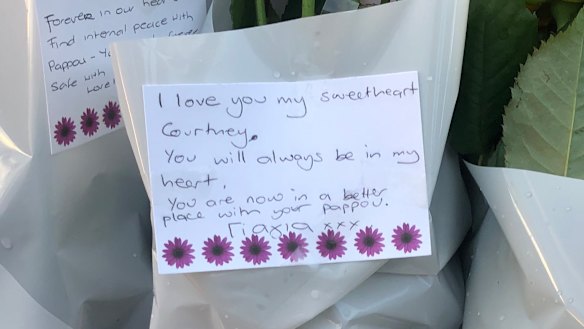 Forever in our hear
Find internal peace with
Pappou - Yo
safe with
Love
I love you my sweetheart
Courtney.
You will always be in my
heart.
You are now in a better
place with your pappou.
Γιαγια xxx